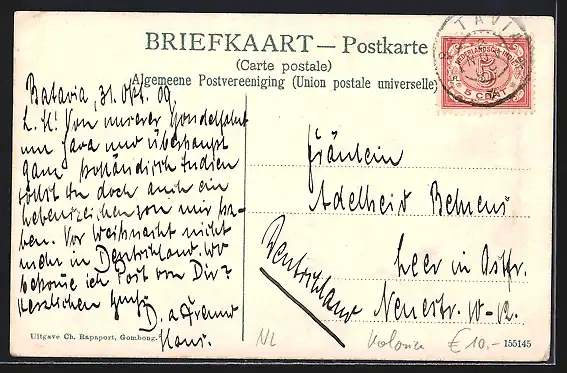 BRIEFKAART — Postkarte
(Carte postale)
Algemeene Postvereeniging (Union postale universelle)
TAVIA
NEDERLANDSCH-INDIË
5
5 CENT
Batavia, 31. Okt. 09.
L. A! Von unserer Gondelfahrt
um Java und überhaupt
ganz holländisch Indien
sollst du doch auch ein
Lebenszeichen von mir ha-
ben. Vor Weihnacht nicht
mehr in Deutschland. Wo
bekomme ich Post von Dir?
Herzlichen Gruß
D. a. Freund
Hans.
Fräulein
Adelheid Behrens
Leer in Ostfr.
Neuestr. 10-12.
Deutschland
Uitgave Ch. Rapaport, Gombong.
NL
Kolonien
€ 10.-
155145